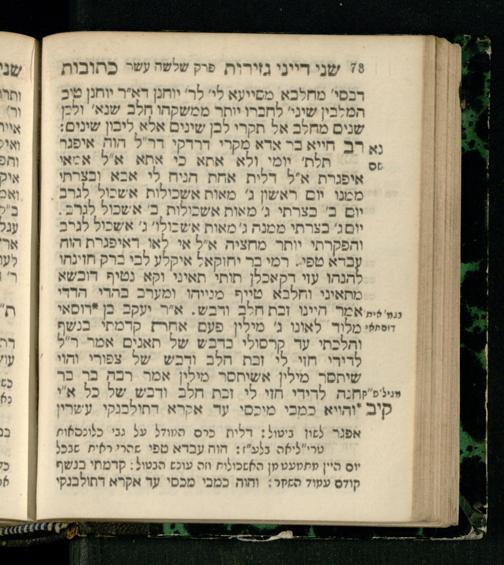 78 שני דייני גזירות פרק שלשה עשר כתובות
דכסי' מחלבא מסייעא לי' לר' יוחנן דא"ר יוחנן טוב
המלבין שיני' לחברו יותר ממשקהו חלב שנא' ולבן
שנים מחלב אל תקרי לבן שינים אלא ליבון שינים:
נא רב חייא בר אדא מקרי דרדקי דר"ל הוה איפגר
תלת' יומי ולא אתא כי אתא א"ל אמאי
שם
איפגרת א"ל דלית אחת הניח לי אבא ובצרתי
ממנו יום ראשון ג' מאות אשכולות אשכול לגרב
יום ב' בצרתי ג' מאות אשכולות ב' אשכול לגרב.
יום ג' בצרתי ממנה ג' מאות אשכולו' ג' אשכול לגרב
והפקרתי יותר מחציה א"ל אי לאו דאיפגרת הוה
עבדא טפי. רמי בר יחזקאל איקלע לבי ברק חזינהו
להנהו עזי דקאכלן תותי תאיני וקא נטיף דובשא
מתאיני וחלבא טייף מנייהו ומערב בהדי הדדי
אמר היינו זבת חלב ודבש. א"ר יעקב בן *דוסאי
דוסתאי
מלוד לאונו ג' מילין פעם אחרת קדמתי בנשף
והלכתי עד קרסולי בדבש של תאנים אמר ר"ל
לדידי חזי לי זבת חלב ודבש של צפורי והוי
שיתסר מילין אשיתסר מילין אמר רבה בר בר
חנה לדידי חזי לי זבת חלב ודבש של כל א"י
קיב *והויא כמבי מיכסי עד אקרא דתולבנקי עשרין
אפגר לשון ביטול: דלית כרם המודל על גבי כלונסאות
טרי"ליאה בלע"ז: הוה עבדא טפי שהרי ראית שבכל
יום היין מתמעט מן האשכולות וזה עונש הבטול: קדמתי בנשף
קודם עמוד השחר: והוה כמבי מכסי עד אקרא דתולבנקי